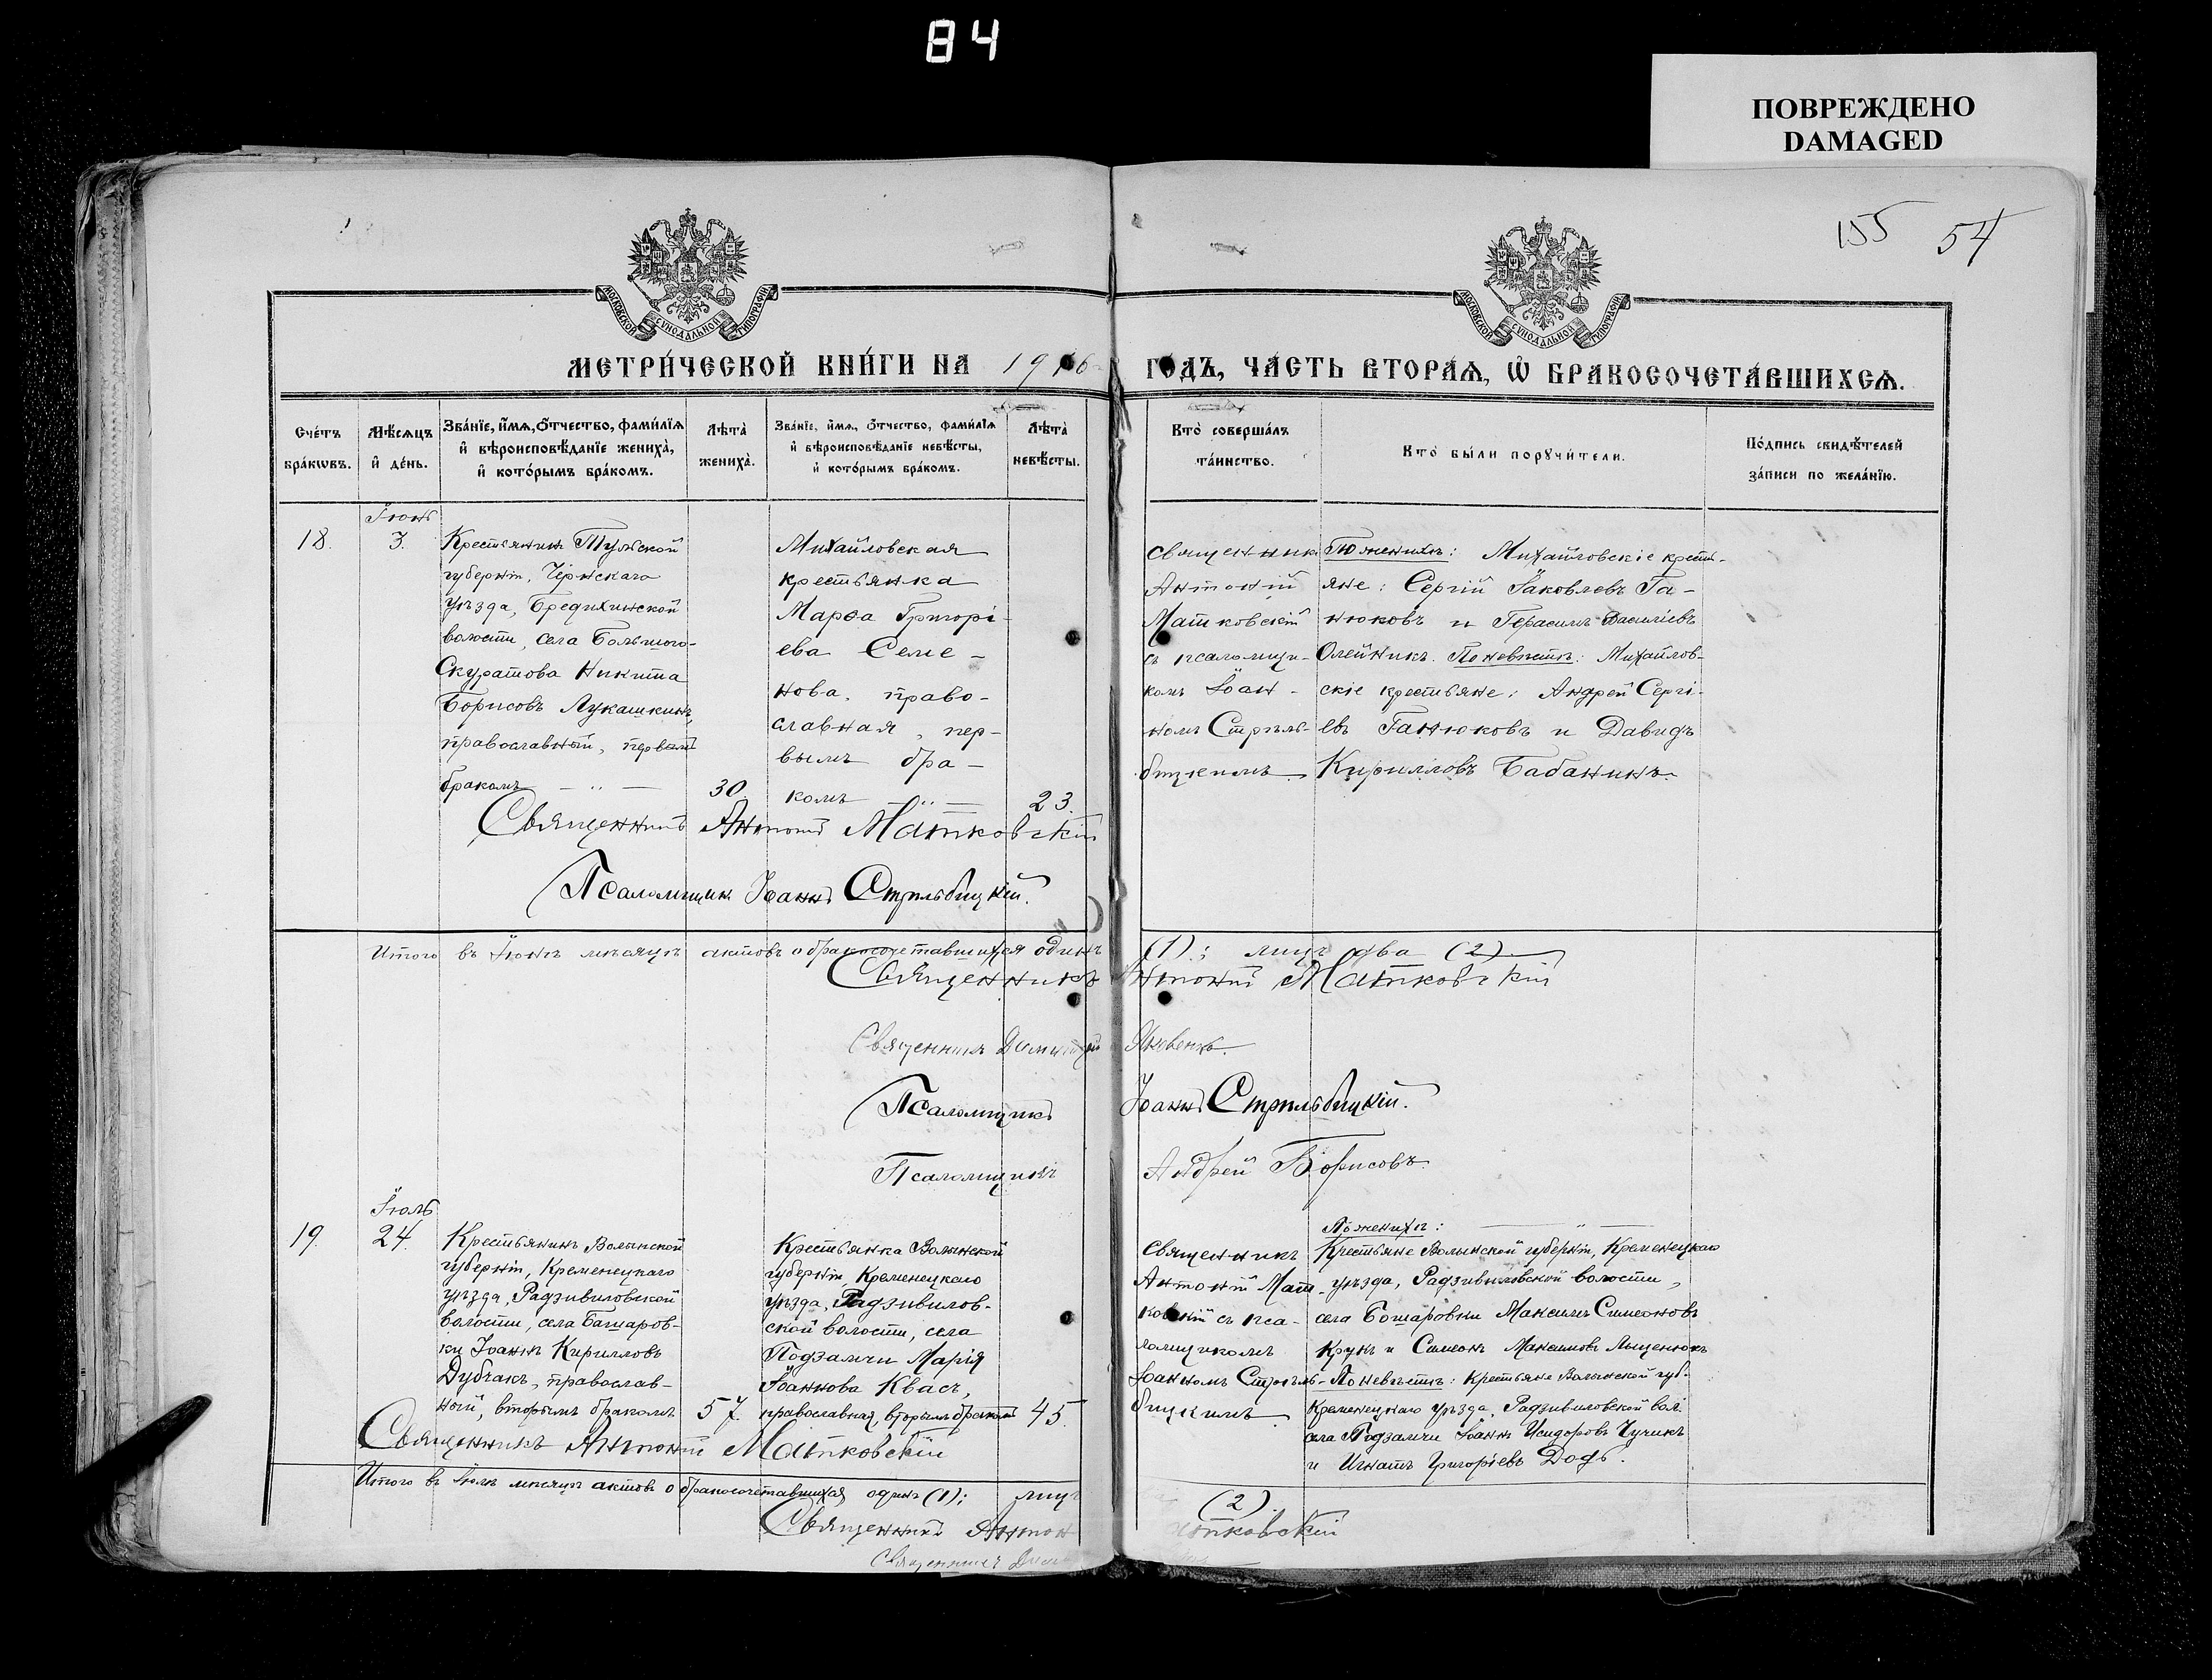 84
ПОВРЕЖДЕНО
DAMAGED
155 54
МОСКОВСКОЙ СѴНОДАЛЬНОЙ ТИПОГРАФІИ
МОСКОВСКОЙ СѴНОДАЛЬНОЙ ТИПОГРАФІИ
МЕТРИ́ЧЕСКОЙ КНИ́ГИ НА 1916 ГОДЪ, ЧА́СТЬ ВТОРАѦ, Ѽ БРАКОСОЧЕТА́ВШИХСѦ.
Сче́тъ бра́кωвъ.
Мѣ́сѧцъ и҆ де́нь.
Зва́нїе, и҆́мѧ, ѻ҆́тчество, фами́лїѧ
и҆ вѣроисповѣ́данїе жениха̀,
и҆ кото́рымъ бра́комъ.
Лѣ́та̀
жениха̀.
Зва́нїе, и҆́мѧ, ѻ҆́тчество, фами́лїѧ
и҆ вѣроисповѣ́данїе невѣ́сты,
и҆ кото́рымъ бра́комъ.
Лѣ́та̀
невѣ́сты.
Кто̀ соверша́лъ
та́инство.
Кто̀ бы́ли порꙋчи́тели.
По́дпись свидѣ́телей
за́писи по жела́нїю.
18.
Іюнь
3.
Крестьянинъ Тульской
губерніи, Чернскаго
уѣзда, Бредихинской
волости, села Большого-
Скуратова Никита
Борисовъ Лукашкинъ,
православный, первымъ
бракомъ
30.
Михайловская
крестьянка
Марѳа Григорі-
ева Семе-
нова, право-
славная, пер-
вымъ бра-
комъ
23.
Священникъ
Антоній
Матковскій
съ псаломщи-
комъ Іоан-
номъ Стрѣль-
бицкимъ
По женихѣ: Михайловскіе кресть-
яне: Сергій Іаковлевъ Га-
нюковъ и Герасимъ Василіевъ
Олейникъ. По невѣстѣ: Михайлов-
скіе крестьяне: Андрей Сергі-
евъ Ганюковъ и Давидъ
Кирилловъ Бабанинъ.
Священникъ Антоній Матковскій
Псаломщикъ Іоаннъ Стрильбицкій.
Итого въ Іюнѣ мѣсяцѣ актовъ о бракосочетавшихся одинъ (1); лицъ два (2)
Священникъ Антоній Матковскій
Священникъ Димитрій Яковенко.
Псаломщикъ Іоаннъ Стрильбицкій.
Псаломщикъ Андрей Борисовъ.
19.
Іюль
24.
Крестьянинъ Волынской
губерніи, Кременецкаго
уѣзда, Радзивиловской
волости, села Башаров-
ки Іоаннъ Кирилловъ
Дубчакъ, православ-
ный, вторымъ бракомъ
57.
Крестьянка Волынской
губерніи, Кременецкаго
уѣзда, Радзивилов-
ской волости, села
Подзамчи Марія
Іоаннова Квасъ,
православная, вторымъ бракомъ
45.
Священникъ
Антоній Мат-
ковскій съ пса-
ломщикомъ
Іоанномъ Стрѣль-
бицкимъ
По женихѣ:
Крестьяне Волынской губерніи, Кременецкаго
уѣзда, Радзивиловской волости,
села Бошаровки Максимъ Симеоновъ
Крукъ и Симеонъ Максимовъ Лыценюкъ
По невѣстѣ: Крестьяне Волынской губ.
Кременецкаго уѣзда, Радзивиловской вол.
села Подзамчи Іоаннъ Исидоровъ Чучикъ
и Игнатъ Григоріевъ Додь.
Священникъ Антоній Матковскій
Итого въ Іюлѣ мѣсяцѣ актовъ о бракосочетавшихся одинъ (1); лицъ (2)
Священникъ Антон тковскій
Священникъ Дим